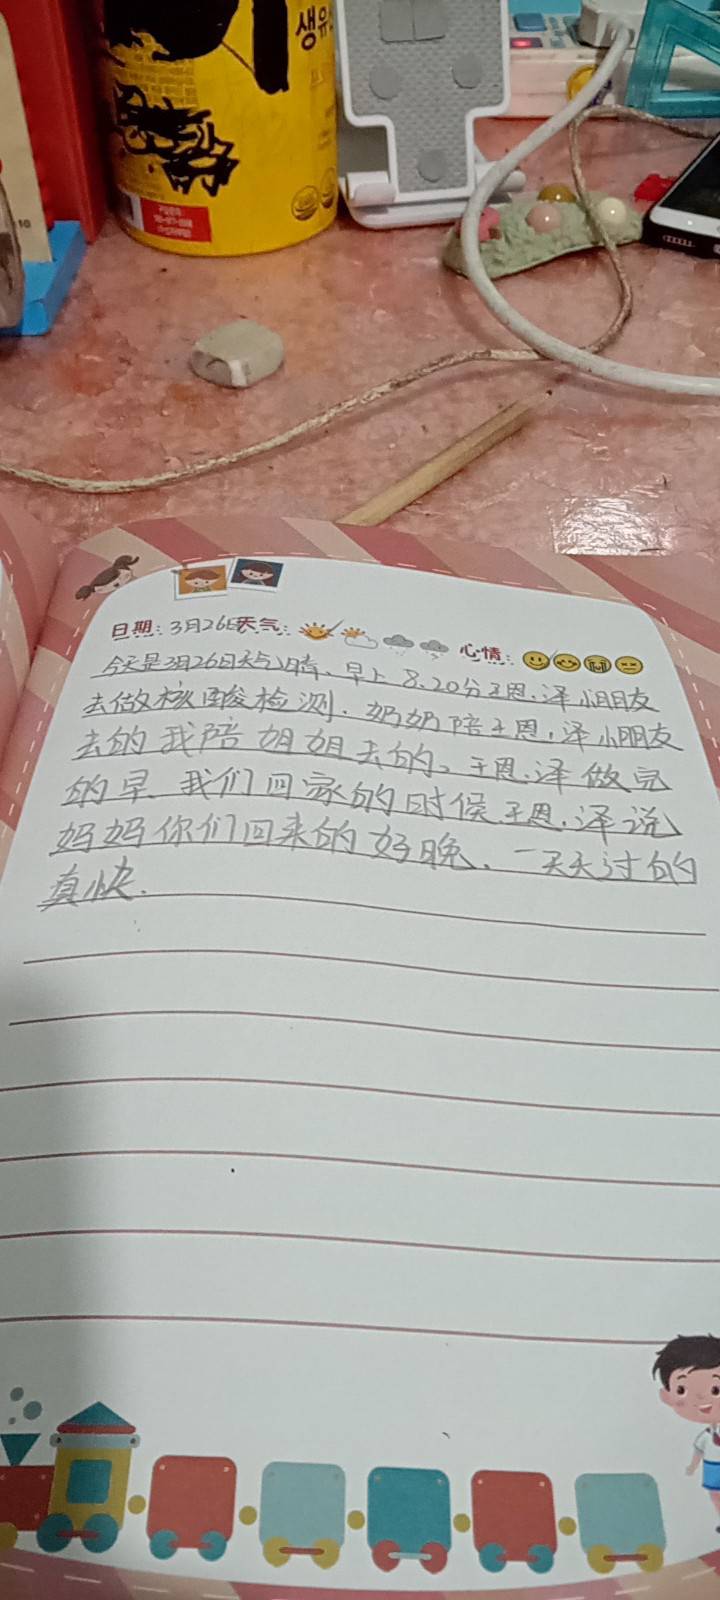 생유
10
日期:3月26日天气:
心情:
今天是3月26日天气晴、早上8.20分王恩.泽小朋友
去做核酸检测.奶奶陪王恩,泽小朋友
去的我陪姐姐去的。王恩.泽做完
的早.我们回家的时候王恩.泽说
妈妈你们回来的好晚、一天天过的
真快.